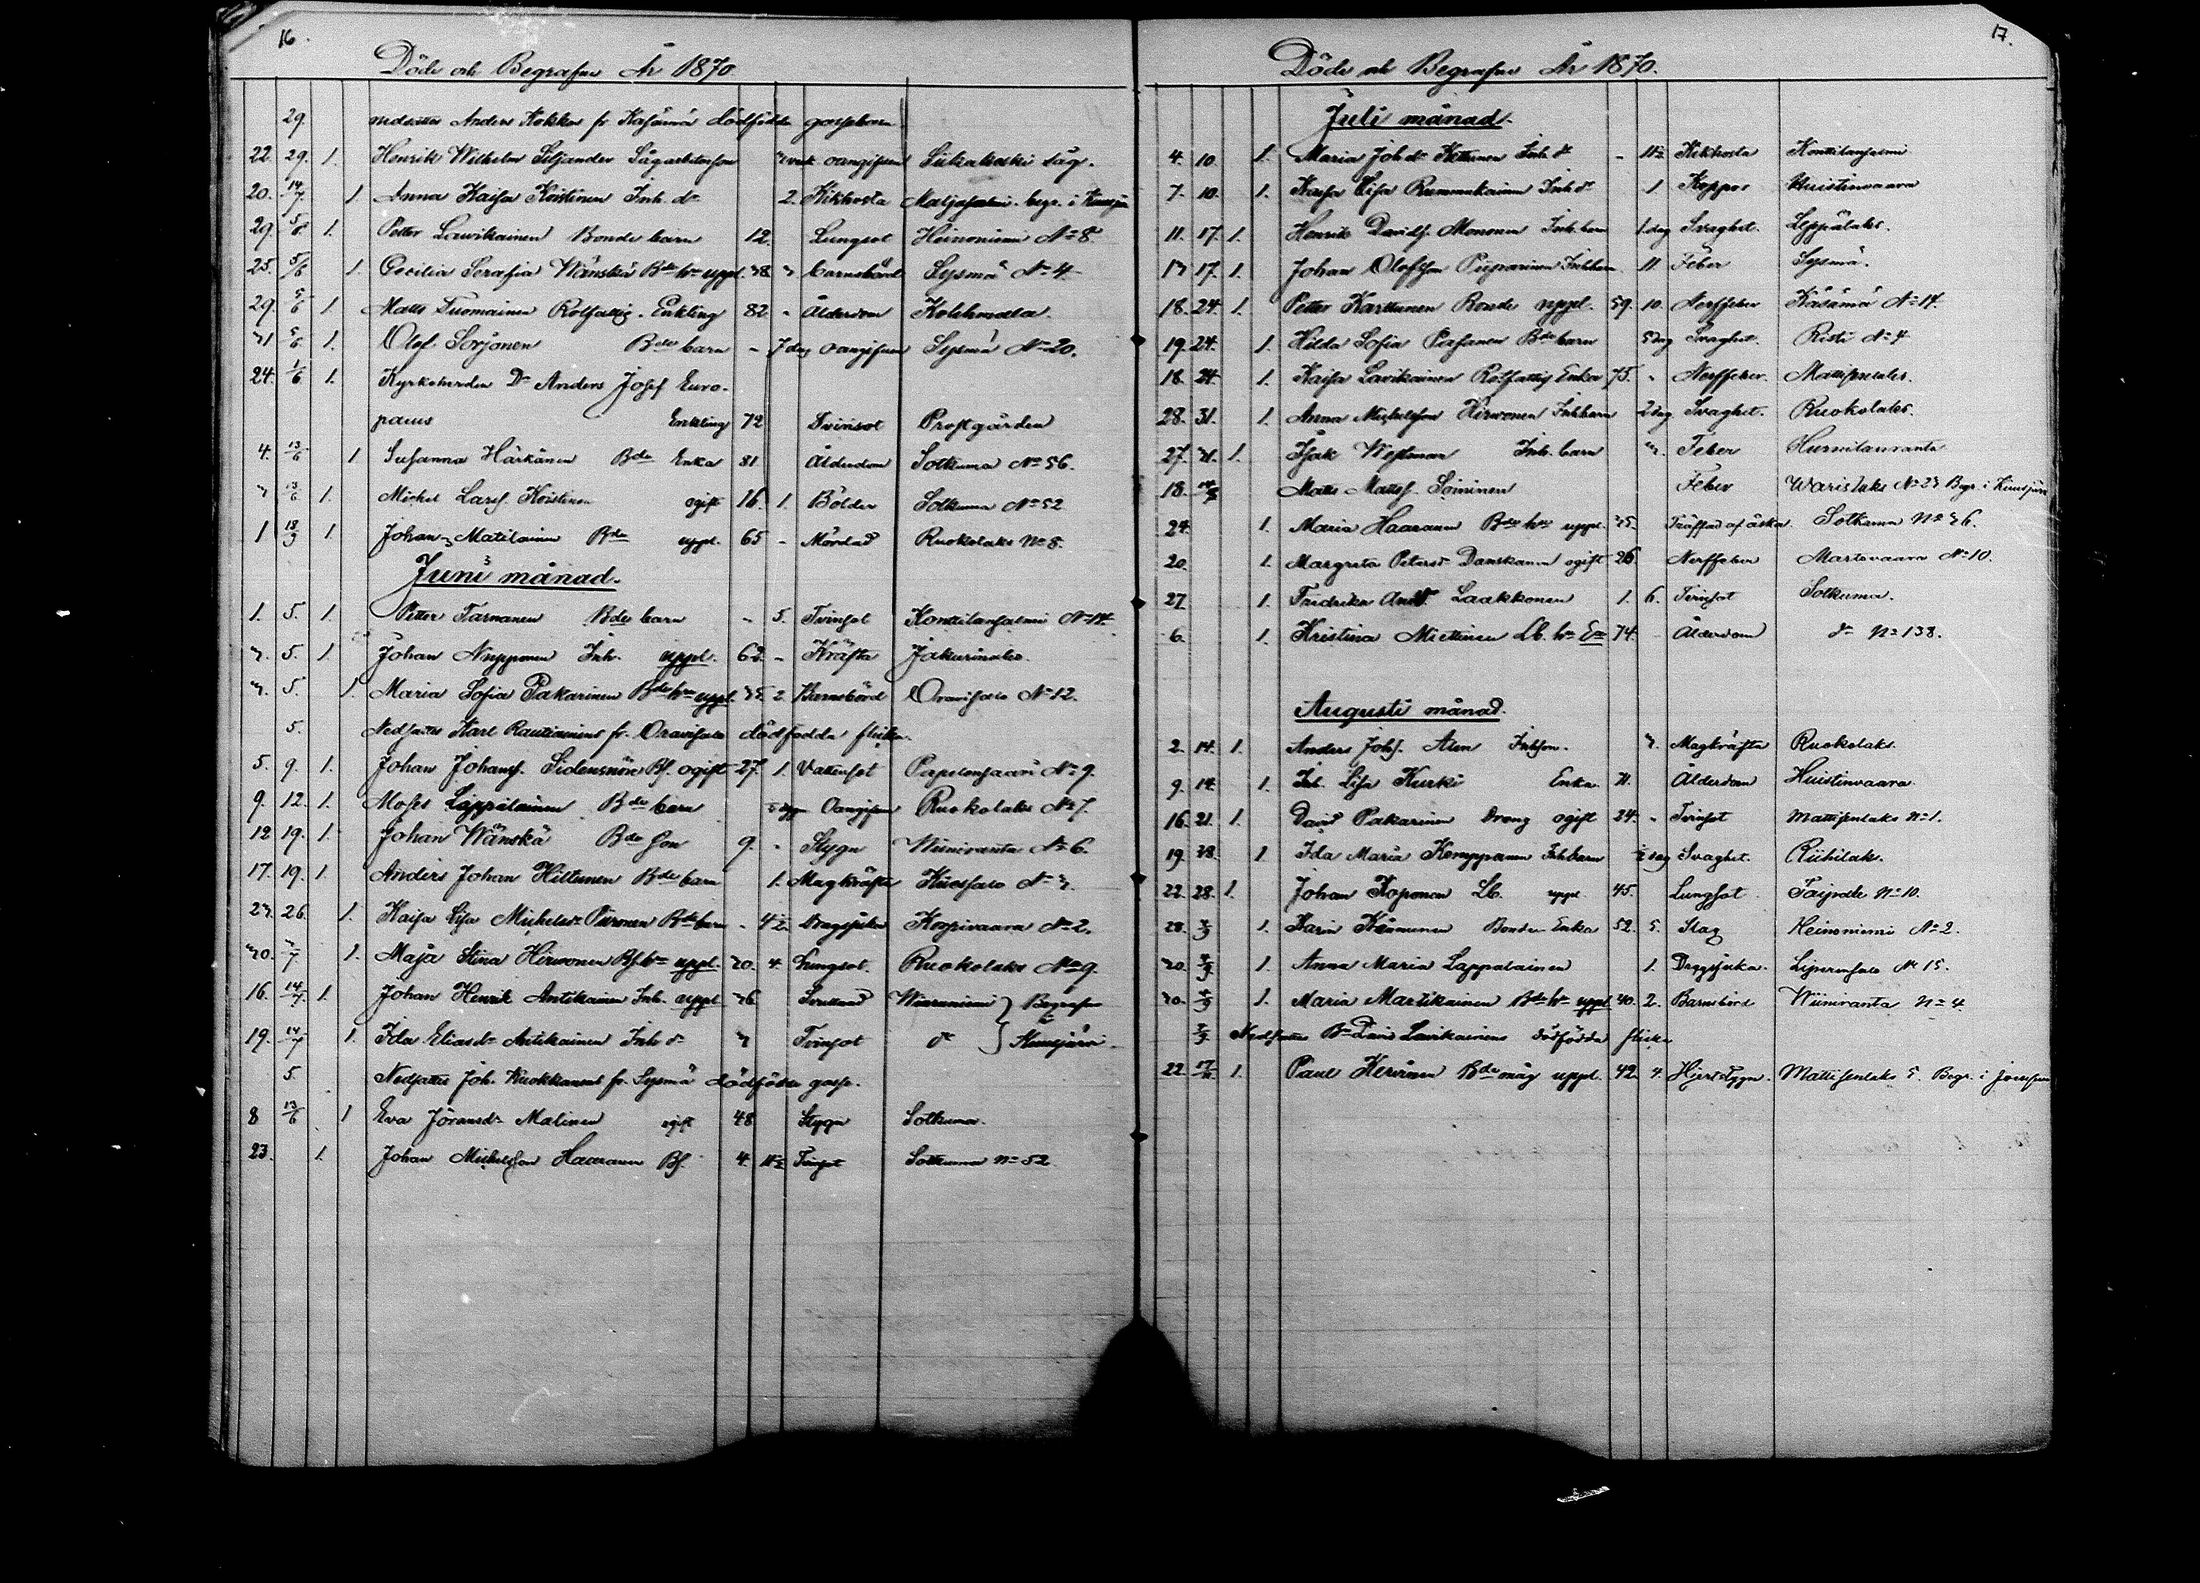 16.
Döde och Begrafne År 1870
29. nedsattes Anders Kokkos fr Käsämä dödfödde gossebarn
22. 29. 1. Henrik Wilhelm Siljander Sågarbetareson 3 veck oangifven Siikakoski såg.
20. 14/7 1 Anna Kaisa Koistinen Inh. dr 2. Kikhosta Maljasalmi. begr. i Kuusjärvi
29. 5/6 1. Petter Lawikainen Bonde barn 12. Lungsot Heinoniemi No 8.
25. 5/6 1. Cecilia Serafia Wänskä Bde hru uppl. 38 3 barnsbörd Sysmä No 4
29. 5/6 1 Matts Tuomainen Rotfattig. Enkling 82 - Ålderdom Kokkomäla.
31 5/6 1. Olof Sorjonen Bde barn - 7 dag oangifven Sysmä No 20.
24. 1/6 1. Kyrkoherden Dr Anders Josef Euro-
paeus Enkling 72 Tvinsot Prostgården
4. 13/6 1 Susanna Härkänen Bde Enka 81 Ålderdom Sotkuma No 56.
3 13/6 1. Michel Larss. Koistinen ogift 16. 1. Bölder Sotkuma No 52
1 18/9 1 Johan Matilainen Bde uppl. 65 - Mördad Ruokolaks No 8.
Juni månad.
1. 5. 1. Petter Tarmanen Bde barn - 5. Tvinsot Konttilansalmi No 14
3. 5. 1. Johan Nupponen Inh. uppl. 62. - Kräfta Jakurinoles
3. 5. 1. Maria Sofia Pakarinen Bde hru uppl. 35. 2. Barnsbörd Oravisalo No 12.
5. Nedsattes Karl Rautiainens fr. Oravisalo dödfödda flicka.
5. 9. 1. Johan Johanss. Sidensnöre Bs. ogift 27. 1. Vattensot Papelonsaari No 9.
9. 12. 1. Moses Läppälainen Bde barn Oangifven Ruokolaks No 7.
12 19. 1. Johan Wänskä Bde Son 9. - Stygn Wiiniranta No 6.
17. 19. 1 Anders Johan Hiltunen Bde barn 1. Magkräfta Kuussalo No 3.
23. 26. 1. Kaisa Lisa Michelsdr Piironen Bde barn - 4½ Dragsjuka Korpivaara No 2.
30. 3/7 1. Maja Stina Hirwonen Bs. hru uppl. 30. 4. Lungsot. Ruokolaks No 9.
16. 14/7 1. Johan Henrik Antikainen Inh. uppl 36. Wiiraniemi } Begrafne
19. 14/7 1. Ida Eliasdr Antikainen Inh dr 3 Tvinsot do } i Kuusjärvi
5. Nedsattes Joh. Kuokkanens fr. Sysmä dödfödde gosse.
8 13/6 1 Eva Jöransdr Malinen ogift 48 Stygn Sotkuma.
23. 1. Johan Michelsson Haaranen Bs. 4. 11½ Tvinsot Sotkuma No 52
17.
Döde och Begrafne År 1870.
Juli månad.
4. 10. 1. Maria Joh dr Kettunen Inh dr - 11½ Kikhosta Konttilansalmi
7. 10. 1. Kaisa Lisa Rummukainen Inh dr 1 Koppor Huistinvaara
11. 17. 1. Henrik Davids. Mononen Inh. barn 1 dag Svaghet. Leppälaks.
13 17. 1. Johan Olofsson Puparinen Inh barn 11. Feber Sysmä.
18. 24. 1. Petter Karttunen Bonde uppl. 59. 10. Nerffeber Käsämä No 14.
19. 24. 1. Hilda Sofia Piasanen Bde barn 5 dag Svaghet. Risti No 4
18. 24. 1. Kaisa Lavikainen Rotfattig Enka 75. - Nerffeber. Mattisenlaks.
28. 31. 1. Anna Michelsson Hirwonen Inh barn 2 dag Svaghet. Ruokolaks.
27. 31. 1. Isak Westman Inh. barn 3. Feber Hurmilanranta
18. 14/8 Matts Matts. Soininen Feber Warislaks No 23 Begr. i Kuusjärvi
24. 1. Maria Haaranen Bde hru uppl. 35. Träffad af åska. Sotkuma No 36.
20. 1. Margreta Petersdr Danskanen ogift 26. Nerffeber Martovaara No 10.
27 1. Fredrika Andd. Laakkonen 1. 6. Tvinsot Sotkuma.
6. 1. Kristina Miettinen Lb. hru Ea 74. - Ålderdom do No 138.
Augusti månad.
2. 14. 1. Anders Johs. Alen Inh son. 3. Magkräfta Ruokolaks.
9. 14. 1. Inh. Lisa Kurki Enka 71. Ålderdom Huistinvaara.
16. 21. 1 David Pakarinen Dreng ogift 24. - Tvinsot Mattisenlaks No 1.
19. 28. 1 Ida Maria Kemppanen Inh barn ½ dag Svaghet. Riihilak.
22. 28. 1. Johan Koponen Lb. uppl 45. Lungsot Taipale No 10.
28. 4/9 1. Karin Kämunen Bonde Enka 52. 5. Slag Heinoniemi No 2.
30. 4/9 1. Anna Maria Lappalainen 1. Dragsjuka. Liperinsalo No 15.
30. 4/9 1. Maria Martikainen Bde hru uppl 40. 2. Barnsbörd Wiiniranta No 4.
4/9 Nedsattes Bn David Lavikainens dödfödda flicka
22. 17/11 1. Paul Kervinen Bde måg uppl. 42. 4. Hjertstygn. Mattisenlaks 5. Begr. i Joensuu